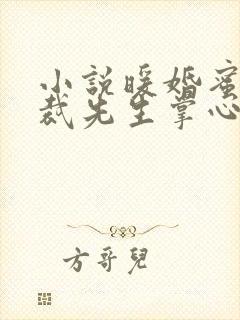 小說暖婚蜜
裁先生掌心
方哥兒